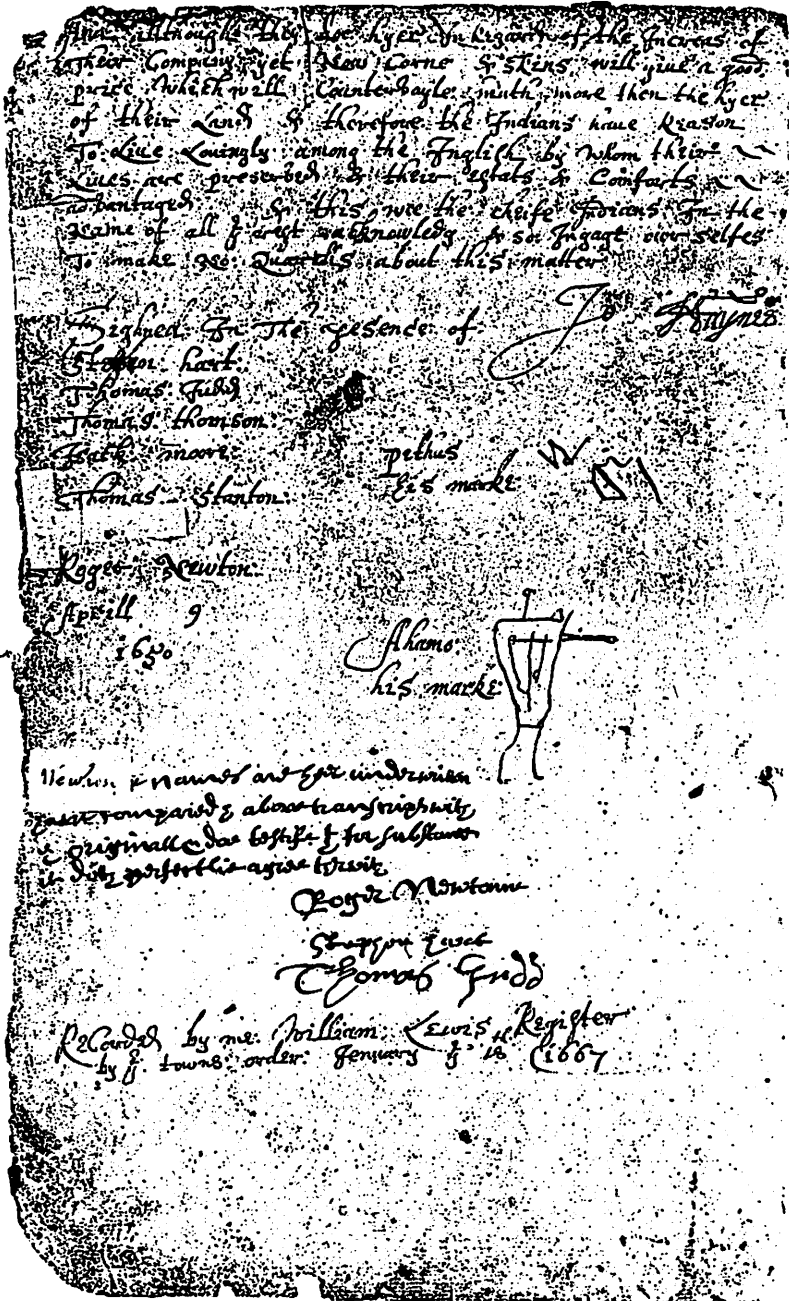 And although they doe hyer In Regard of the Increas of
their Company yet Now Corne & skins will giue a good
price which will Counteruayle much more then the hyer
of their Land & therefore the Indians haue Reason
To Liue Louingly among the Inglish by whom their
Liues are preserued & their estats & Comforts
aduantaged & this wee the cheife Indians In the
Name of all ye rest acknowledg & so Ingage our selfes
To make No Quarells about this matter
Sighned In The presence of Jo Haynes
Stephen hart
Thomas Judd
Thomas thomson
Isack moore
pethus
his marke
Thomas Stanton
Roger Newton
Aprill 9
1650
Ahamo
his marke
names are her underwriten
compared ye aboue transcript with
ye originall doe testifie yt for substance
it doth perfectlie agree therewith
Roger Newtonne
Stephen hart
Thomas Judd
Recorded by me William Lewis Register
by ye towns order Jenuary ye 18th (1667